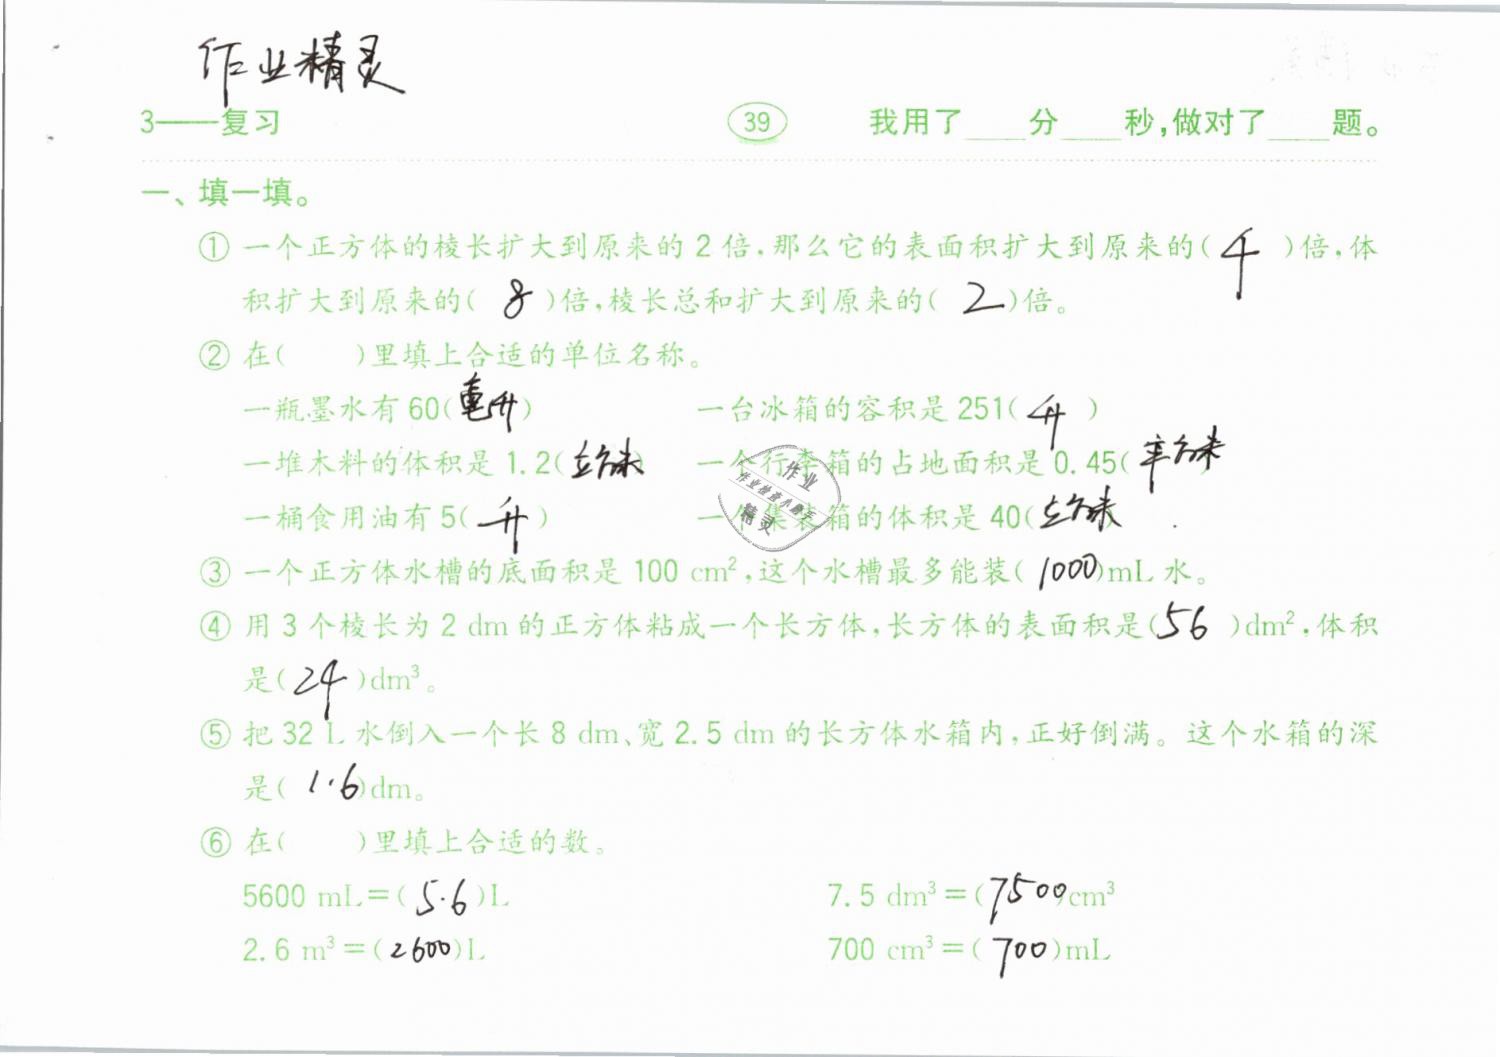 作业精灵
3——复习 39 我用了____分____秒,做对了____题。
一、填一填。
① 一个正方体的棱长扩大到原来的2倍,那么它的表面积扩大到原来的( 4 )倍,体
积扩大到原来的( 8 )倍,棱长总和扩大到原来的( 2 )倍。
② 在( )里填上合适的单位名称。
一瓶墨水有60(毫升) 一台冰箱的容积是251(升)
一堆木料的体积是1.2(立方米) 一个行李箱的占地面积是0.45(平方米
一桶食用油有5(升) 一个集装箱的体积是40(立方米)
③ 一个正方体水槽的底面积是100 cm²,这个水槽最多能装(1000)mL水。
④ 用3个棱长为2 dm的正方体粘成一个长方体,长方体的表面积是(56)dm²,体积
是(24)dm³。
⑤ 把32 L水倒入一个长8 dm、宽2.5 dm的长方体水箱内,正好倒满。这个水箱的深
是(1.6)dm。
⑥ 在( )里填上合适的数。
5600 mL=(5.6)L 7.5 dm³=(7500)cm³
2.6 m³=(2600)L 700 cm³=(700)mL
作业
精灵